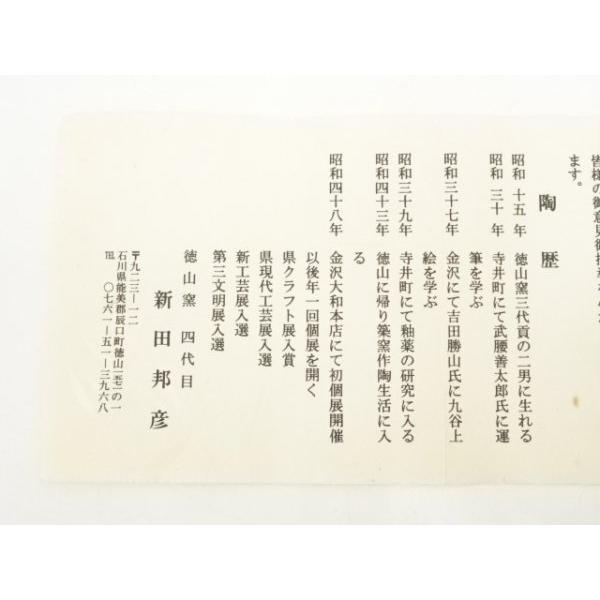 ます。
陶歴
昭和十五年 徳山窯三代貢の二男に生れる
昭和三十年 寺井町にて武腰善太郎氏に運
筆を学ぶ
昭和三十七年 金沢にて吉田勝山氏に九谷上
絵を学ぶ
昭和三十九年 寺井町にて釉薬の研究に入る
昭和四十三年 徳山に帰り築窯作陶生活に入
る
昭和四十八年 金沢大和本店にて初個展開催
以後年一回個展を開く
県クラフト展入賞
県現代工芸展入選
新工芸展入選
第三文明展入選
徳山窯 四代目
新田邦彦
〒九二三―一二
石川県能美郡辰口町徳山
℡ 〇七六一―五一―三九六八